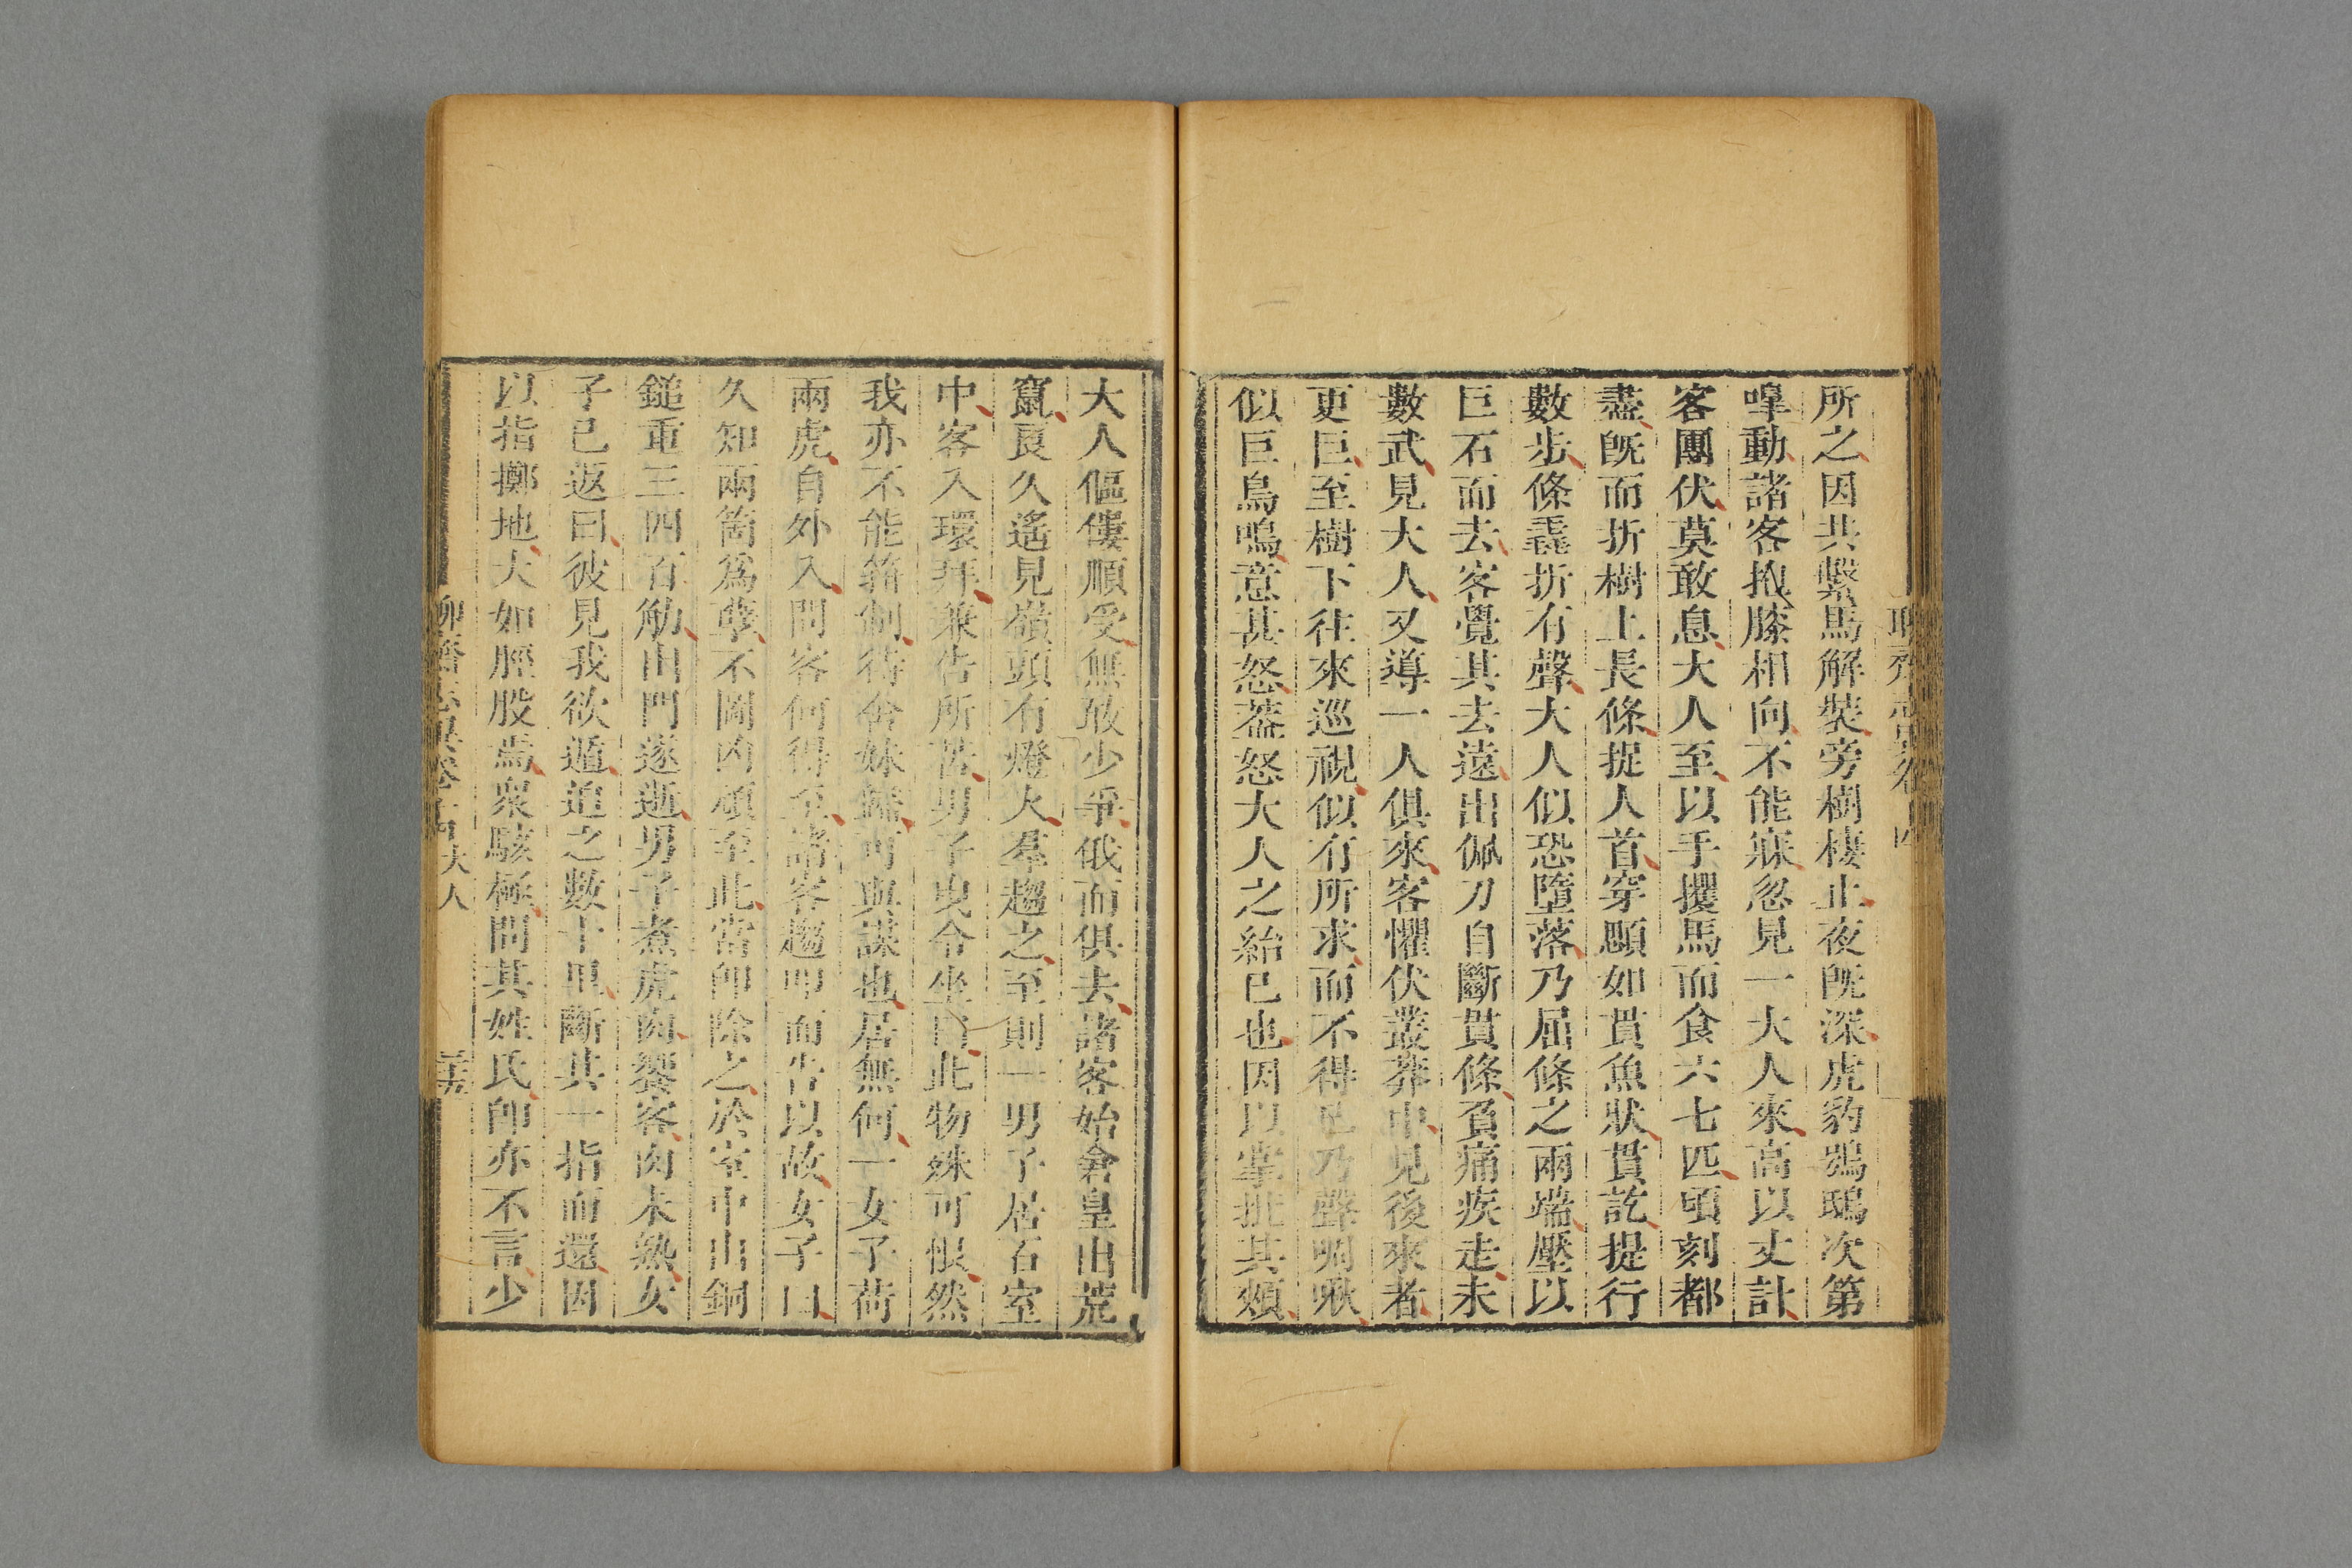 所之因共繫馬解裝旁樹棲止夜旣深虎豹鴞鴟次第
嘷動諸客抱膝相向不能寐忽見一大人來高以丈計
客團伏莫敢息大人至以手攫馬而食六七匹頃刻都
盡旣而折樹上長條捉人首穿顋如貫魚狀貫訖提行
數步條毳折有聲大人似恐墮落乃屈條之兩端壓以
巨石而去客覺其去遠出佩刀自斷貫條負痛疾走未
數武見大人又導一人俱來客懼伏叢莽中見後來者
更巨至樹下往來巡視似有所求而不得已乃聲啁啾
似巨鳥鳴意甚怒蓋怒大人之紿已也因以掌批其頰
大人傴僂順受無敢少爭俄而俱去諸客始倉皇出荒
竄良久遙見嶺頭有燈火羣趨之至則一男子居石室
中客入環拜兼告所苦男子曳令坐曰此物殊可恨然
我亦不能箝制待舍妹歸可與謀也居無何一女子荷
兩虎自外入問客何得至諸客趨叩而告以故女子曰
久知兩箇爲孽不圖凶頑至此當卽除之於室中出銅
鎚重三四百觔出門遂逝男子煮虎肉饗客肉未熟女
子已返曰彼見我欲遁追之數十里斷其一指而還因
以指擲地大如脛股焉衆駭極問其姓氏卽亦不言少
大人